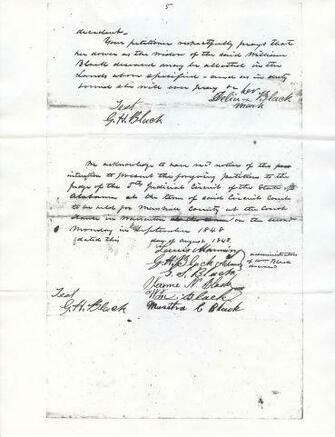 5
decendent.
Your petitioner respectfully prays that
her dower as the widow of the said William
Black deceased may be allotted in the
Lands above specified - and as in duty
bound she will ever pray &c her
Delia x Black
mark
Test
G. H. Black
We acknowledge to have recd notice of the
intention to present the forgoing petition to the
judge of the 5th Judicial Circuit of the State of
Alabama at the term of said Circuit Court
to be held for County at the Court
House in on the second
Monday in September 1848
dated this day of August 1848.
Lewis
G. H. Black
administrators
of Wm Black
deceased
G. S. Black
Jerome N. Black
Wm. Black
Test
G. H. Black
Martha C Black